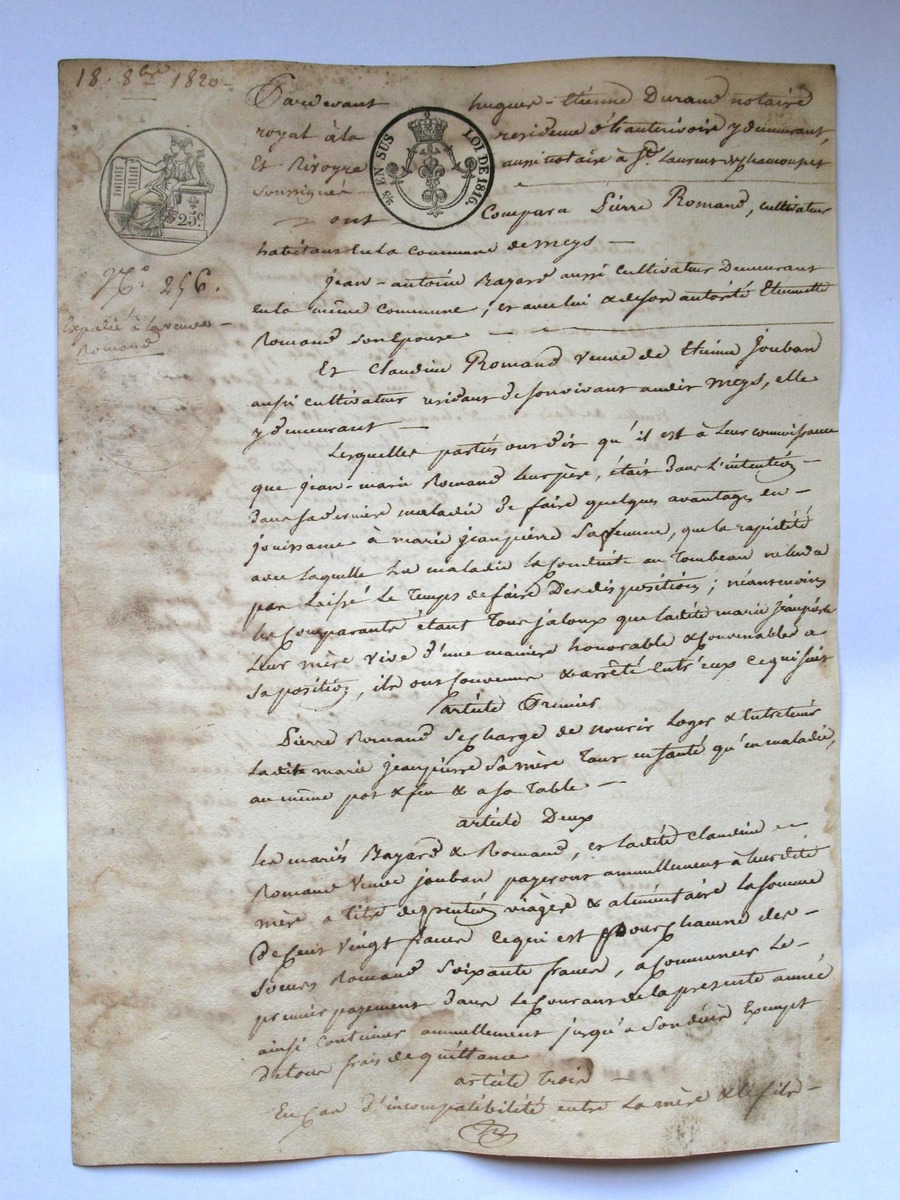 18. 8bre 1820
Pardevant hugues-Etienne Durand notaire
royal à la residence d'hauterivoire y demeurant,
Et Rivoyre aussi notaire à St. Laurent de chamousset
soussignés
2/5 EN SUS LOI DE 1816.
25c
ont Comparu Pierre Romand, cultivateur
habitant En la Commune de meys
N.o 256.
Expédié à la veuve
Romand
jean-antoine Bazard aussi cultivateur Demeurant
en la même commune, et avec lui & de son autorité Etiennette
Romand son Epouse
Et Claudine Romand veuve de Etienne Jouban
aussi cultivateur residant de son vivant audit meys, elle
y demeurant
Lesquelles parties ont dit qu'il est à leur connoissance
que jean-marie Romand leur père, était dans l'intention
dans sa derniere maladie de faire quelques avantages en
jouissance à marie jeanpierre sa femme, que la rapidité
avec laquelle la maladie la conduit au Tombeau ne lui a
pas laissé le temps de faire des dispositions; néantmoins
les Comparants étant tous jaloux que ladite marie jeanpierre
leur mère vive d'une maniere honorable & Convenable a
sa position, ils ont Convenu & arrêté entr'eux ce qui suit
article Premier
Pierre Romand se charge de nourir loger & Entretenir
Ladite marie jeanpierre sa mère Tant en santé qu'en maladie,
au même pot & feu & a sa Table
article Deux
Les mariés Bazard & Romand, et ladite Claudine
Romand veuve jouban payeront annuellement à leurdite
mère a titre de pention viagere & alimentaire la somme
de Cent vingt francs ce qui est pour chacune des
soeurs Romand soixante francs, a Commencer le
premier payement dans le Courant de la presente année
ainsi Continuer annuellement jusqu'a son décès Exempt
de tous frais de quittance
article trois
En Cas d'incompatibilité entre la mère & le fils